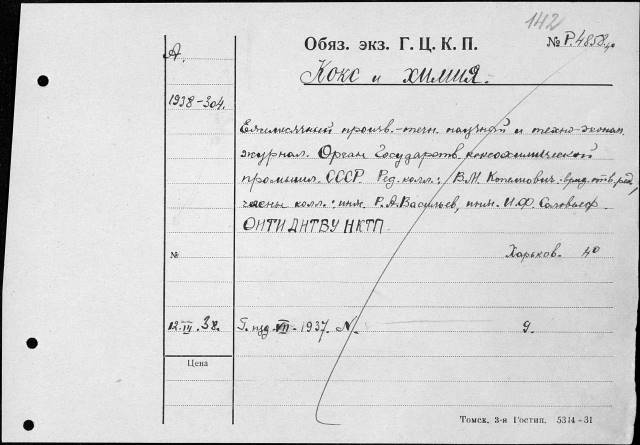 142
Обяз. экз. Г. Ц. К. П.
№ Р.4858
А.
Кокс и химия.
1938-304.
Ежемесячный произв.-техн. научный и техно-эконом.
журнал. Орган Государств. коксохимической
промышл. СССР. Ред. колл.: В.М. врид. отв. ред.,
члены колл.: инж. Р.А. Васильев, инж. И.Ф. Соловьев.
ОНТИ ДНТВУ НКТП.
№
Харьков. 40
12. III. 38.
Г. изд. VII - 1937. N. 9.
Цена
Томск, 3-я Гостип. 5314-31